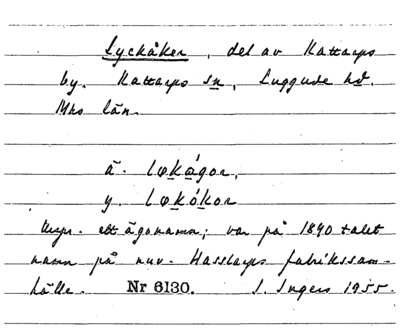 Lyckåker, del av Kattarps
by. Kattarps sn, Luggude hd.
Mhs län.
ä. løkågor,
y. løkókor
Urspr. ett ägonamn; var på 1890 talet
namn på nuv. Hasslarps fabrikssam-
hälle. Nr 6130. I. Ingers 1955.